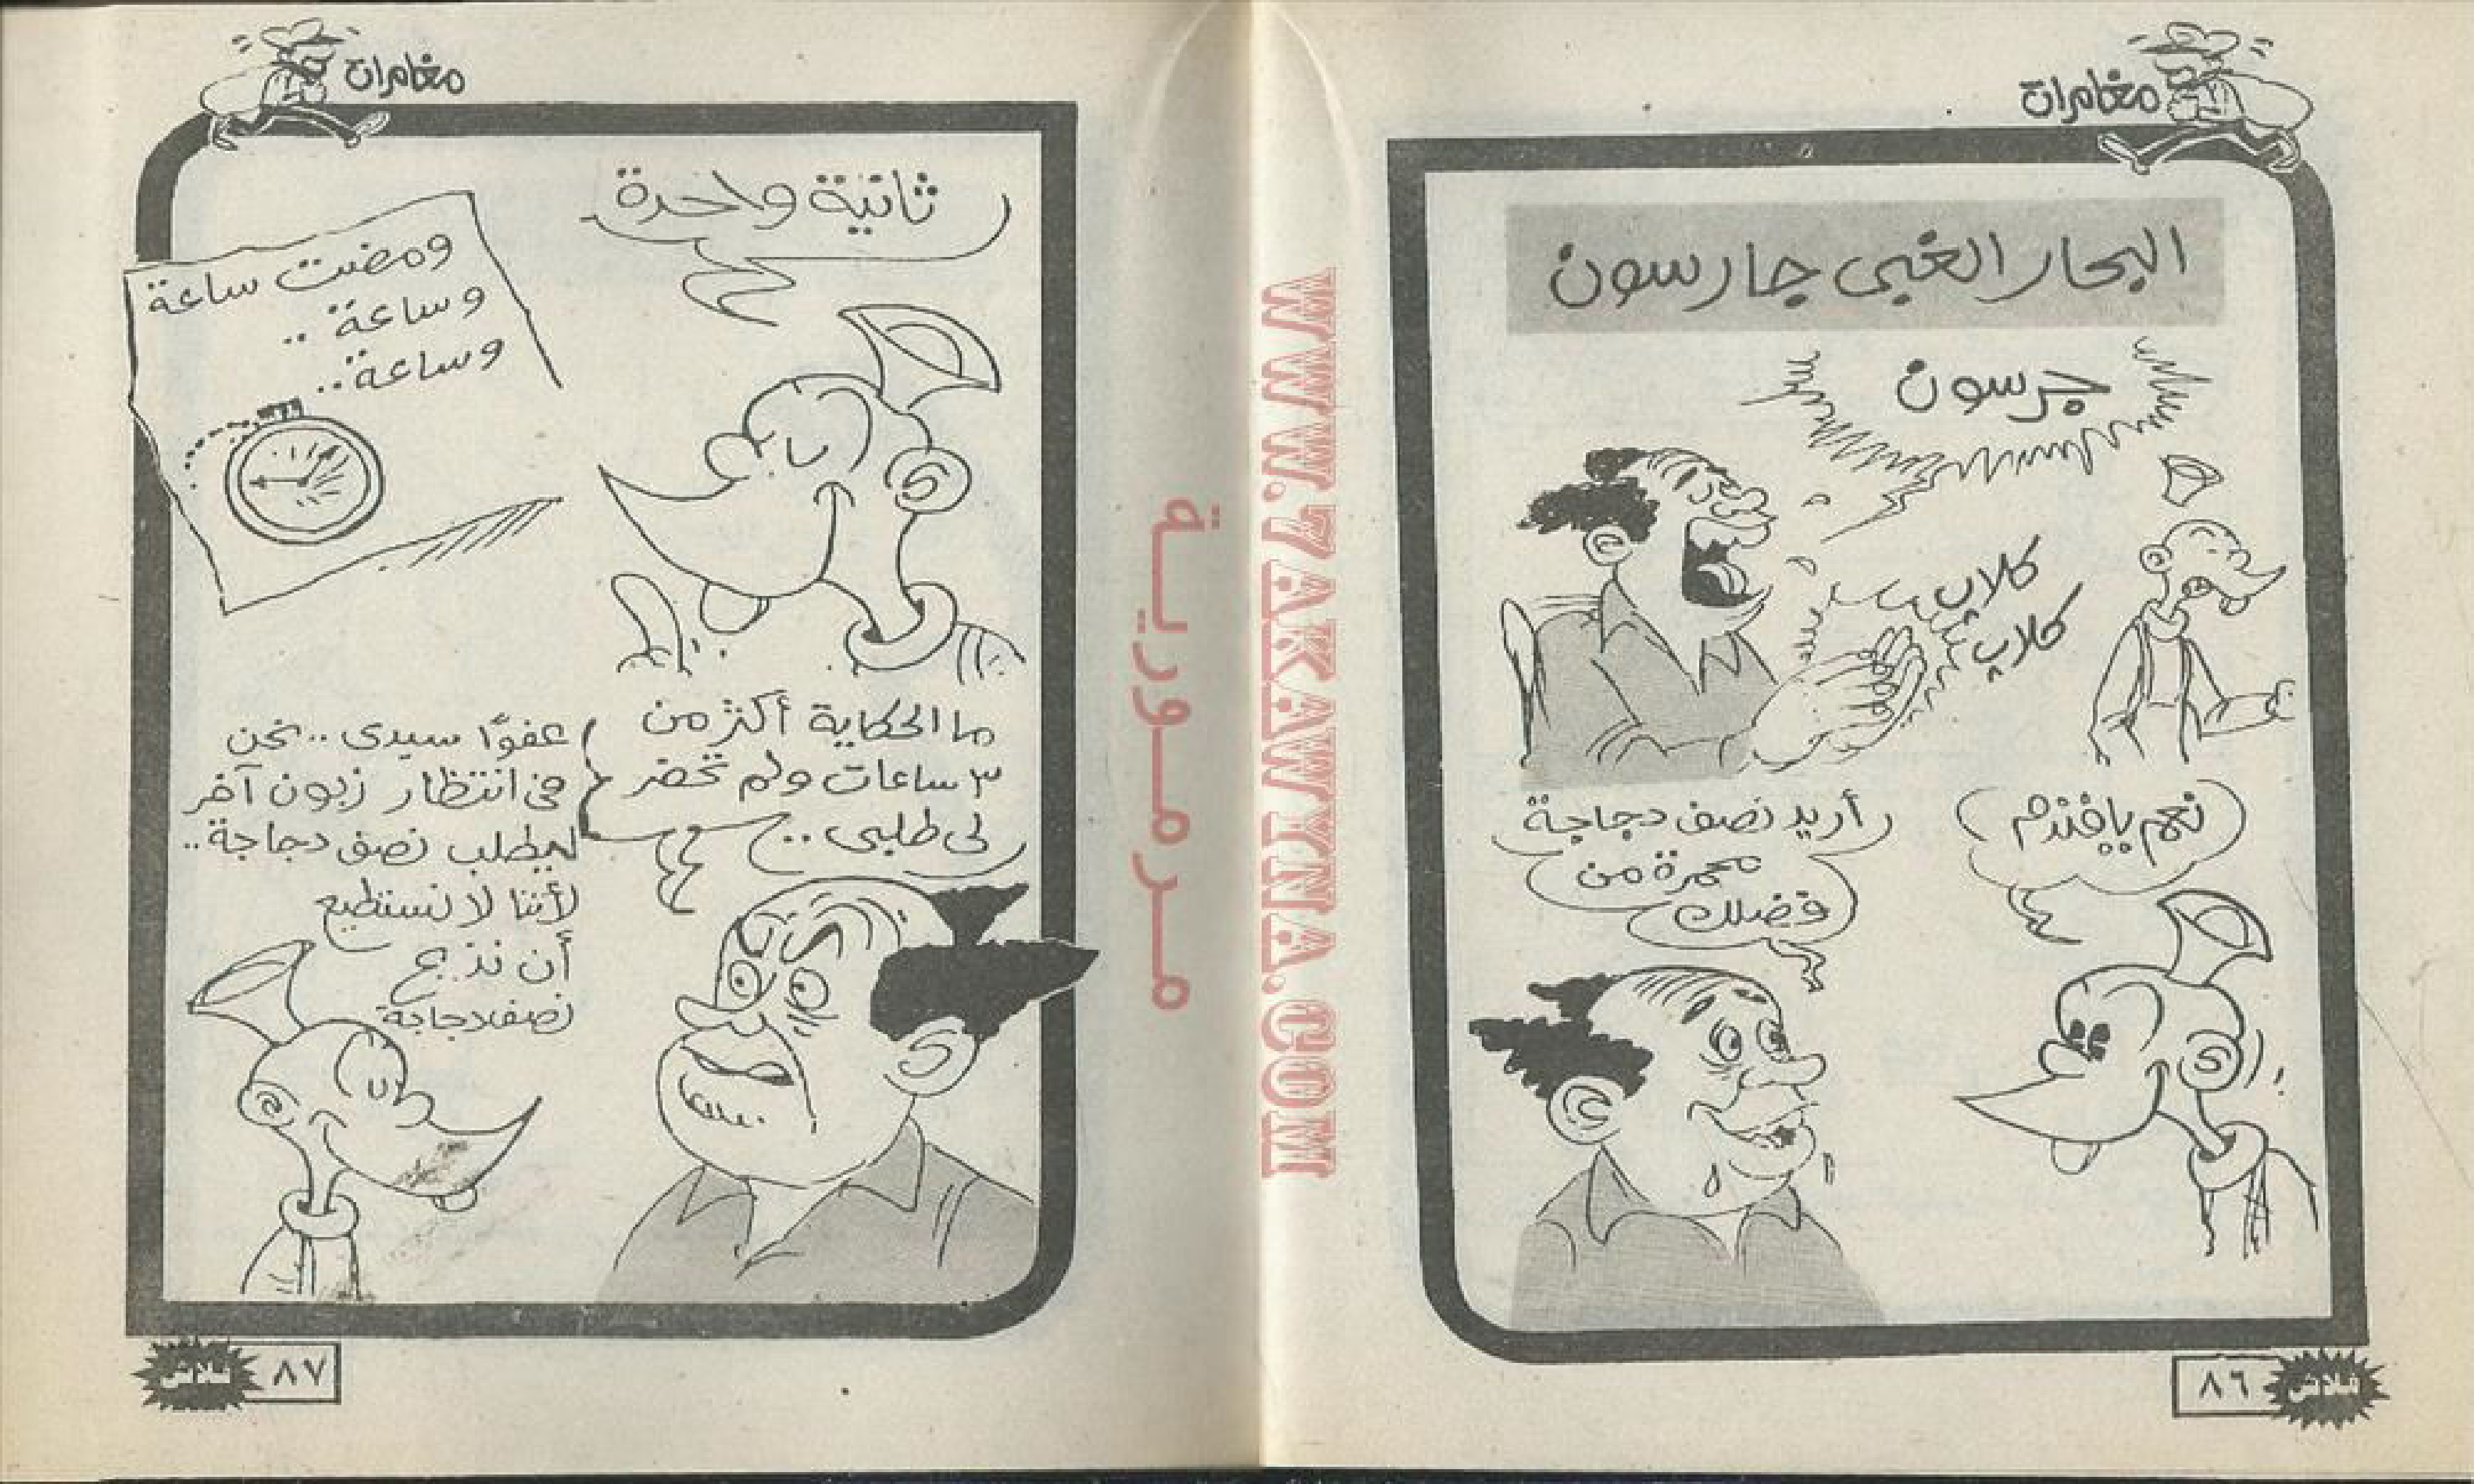 مغامرات
البحار الغبى جارسون
جرسون
كلاب
كلاب
نعم يا فندم
أريد نصف دجاجة
محمرة من
فضلك
٨٦
فلاش
مغامرات
ثانية واحدة
ومضت ساعة
وساعة..
وساعة..
ما الحكاية أكثر من
٣ ساعات ولم تحضر
لى طلبى..
عفوًا سيدى.. نحن
فى انتظار زبون آخر
ليطلب نصف دجاجة..
لأننا لا نستطيع
أن نذبح
نصف دجاجة
٨٧
فلاش
مرمورية
WWW.7AKAWINA.COM